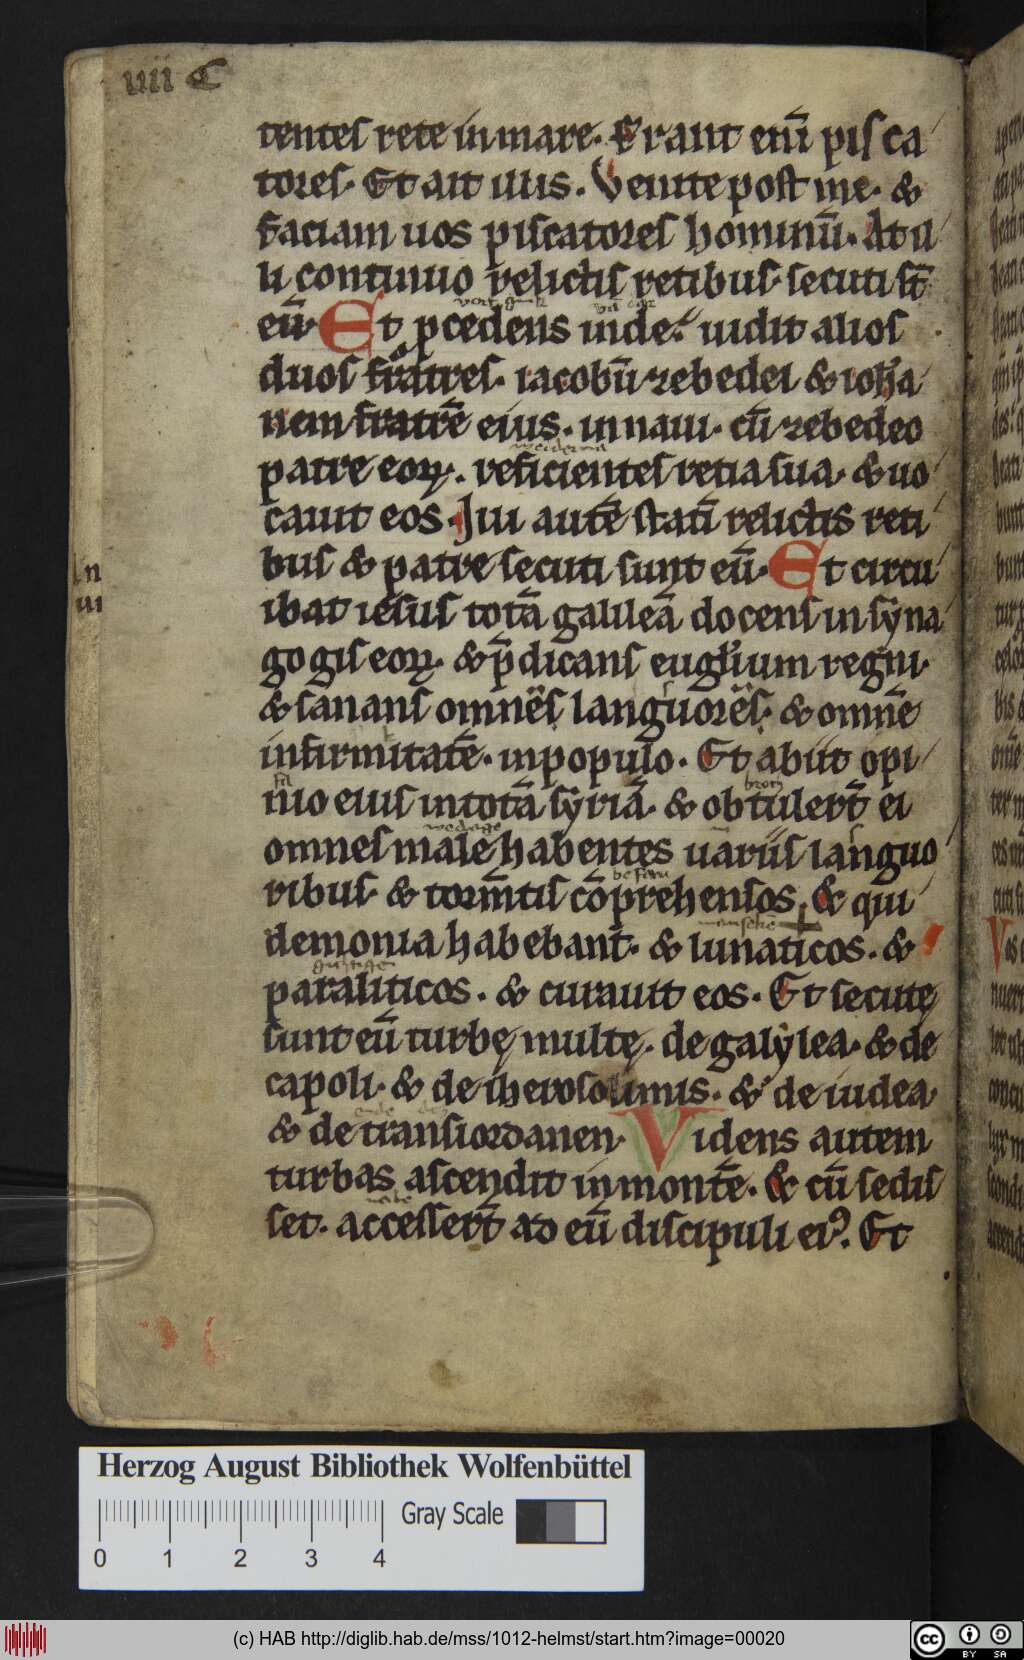 iiii C
tentes rete in mare. Erant eni̅ pisca
tores. Et ait illis. Venite post me. &
faciam uos piscatores hominu̅. At il
li continuo relictis retibus secuti st̅
eu̅. Et pcedens inde. uidit alios
duos fratres. iacobu̅ zebedei & ioha
nem fratre̅ eius. in naui. cu̅ zebedeo
patre eoꝝ. reficientes retia sua. & uo
cauit eos. Illi aute̅ stati̅ relictis reti
bus & patre secuti sunt eu̅. Et circu
ibat iesus tota̅ galilea̅ docens in syna
gogis eoꝝ. & p̅dicans eugl̅ium regni.
& sanans omnes languores. & omne̅
infirmitate̅. in populo. Et abiit opi
nio eius in tota̅ syria̅. & obtulert̅ ei
omnes male habentes uariis languo
ribus. & torm̅tis co̅prehensos. & qui
demonia habebant. & lunaticos. &
paraliticos. & curauit eos. Et secutę
sunt eu̅ turbę multę. de galylea. & de
capoli. & de iherosolimis. & de iudea.
& de transiordanen. Videns autem
turbas ascendit in monte̅. & cu̅ sedis
set. accessert̅ ad eu̅ discipuli eiꝰ. Et
Herzog August Bibliothek Wolfenbüttel
Gray Scale
0 1 2 3 4
(c) HAB http://diglib.hab.de/mss/1012-helmst/start.htm?image=00020
cc BY SA